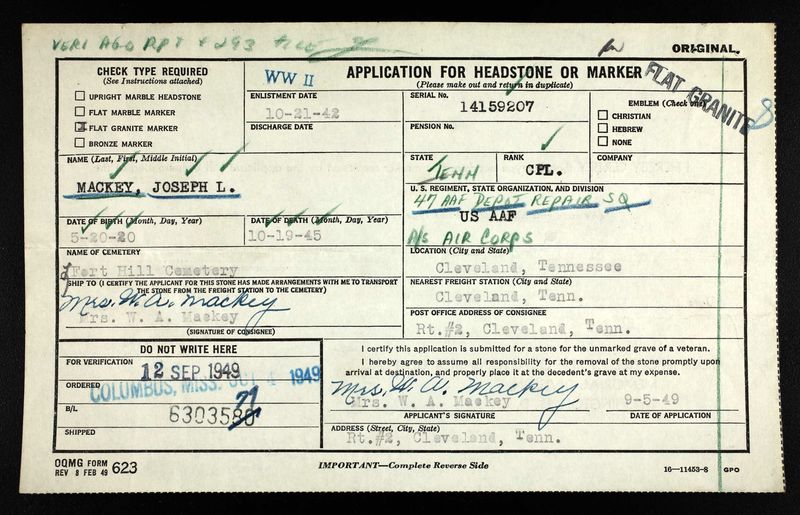 VERI AGO RPT + 293 FILE
ORIGINAL
CHECK TYPE REQUIRED
(See Instructions attached)
UPRIGHT MARBLE HEADSTONE
FLAT MARBLE MARKER
FLAT GRANITE MARKER
BRONZE MARKER
WW II
APPLICATION FOR HEADSTONE OR MARKER
(Please make out and return in duplicate)
FLAT GRANITE
ENLISTMENT DATE
10-21-42
DISCHARGE DATE
SERIAL No.
14159207
PENSION No.
EMBLEM (Check one)
CHRISTIAN
HEBREW
NONE
NAME (Last, First, Middle Initial)
MACKEY, JOSEPH L.
STATE
TENN
RANK
CPL.
COMPANY
U. S. REGIMENT, STATE ORGANIZATION, AND DIVISION
47 AAF DEPOT REPAIR SQ
US AAF
A/S AIR CORPS
DATE OF BIRTH (Month, Day, Year)
5-20-20
DATE OF DEATH (Month, Day, Year)
10-19-45
NAME OF CEMETERY
Fort Hill Cemetery
LOCATION (City and State)
Cleveland, Tennessee
SHIP TO (I CERTIFY THE APPLICANT FOR THIS STONE HAS MADE ARRANGEMENTS WITH ME TO TRANSPORT
THE STONE FROM THE FREIGHT STATION TO THE CEMETERY)
Mrs. W. A. Mackey
Mrs. W. A. Mackey
(SIGNATURE OF CONSIGNEE)
NEAREST FREIGHT STATION (City and State)
Cleveland, Tenn.
POST OFFICE ADDRESS OF CONSIGNEE
Rt.#2, Cleveland, Tenn.
DO NOT WRITE HERE
FOR VERIFICATION
12 SEP 1949
ORDERED
COLUMBUS, MISS. OCT 4 1949
B/L
6303580
SHIPPED
I certify this application is submitted for a stone for the unmarked grave of a veteran.
I hereby agree to assume all responsibility for the removal of the stone promptly upon
arrival at destination, and properly place it at the decedent's grave at my expense.
Mrs. W. A. Mackey
Mrs. W. A. Mackey
9-5-49
APPLICANT'S SIGNATURE
DATE OF APPLICATION
ADDRESS (Street, City, State)
Rt.#2, Cleveland, Tenn.
OQMG FORM
REV 8 FEB 49 623
IMPORTANT—Complete Reverse Side
16—11453-8 GPO